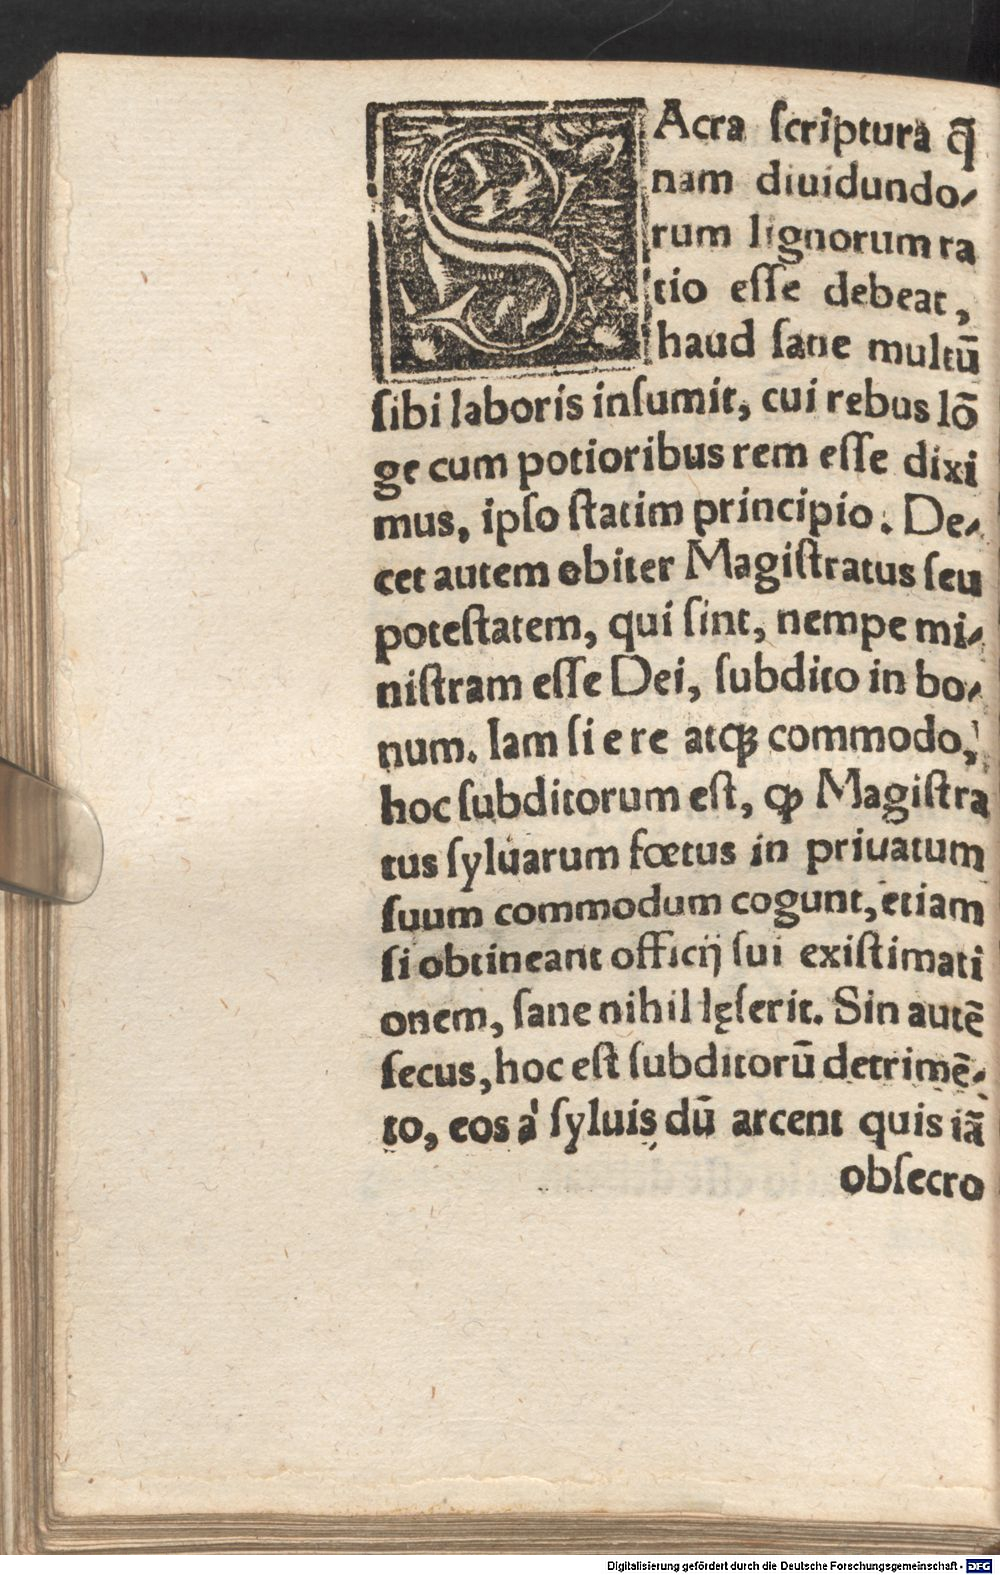 SAcra ſcriptura q̄
nam diuidundo⸗
rum lignorum ra
tio eſſe debeat,
haud ſane multū
ſibi laboris inſumit, cui rebus lō
ge cum potioribus rem eſſe dixi
mus, ipſo ſtatim principio. De⸗
cet autem obiter Magiſtratus ſeu
poteſtatem, qui ſint, nempe mi⸗
niſtram eſſe Dei, ſubdito in bo⸗
num. Iam ſi e re atqꝫ commodo,
hoc ſubditorum eſt, ꝙ Magiſtra
tus ſyluarum fœtus in priuatum
ſuum commodum cogunt, etiam
ſi obtineant officij ſui exiſtimati
onem, ſane nihil lęſerit. Sin autē
ſecus, hoc eſt ſubditorū detrimē⸗
to, eos à ſyluis dū arcent quis iā
obſecro
Digitalisierung gefördert durch die Deutsche Forschungsgemeinschaft - DFG